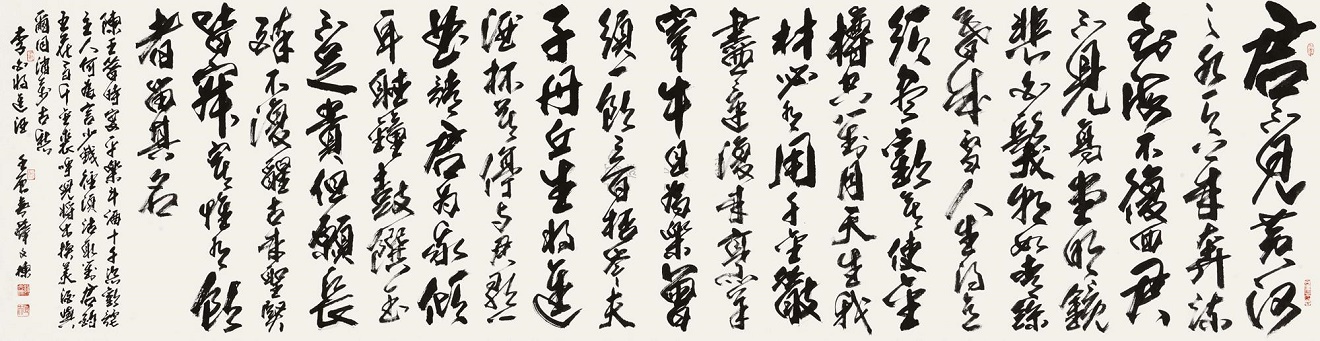 君不見黄河
之水天上来奔流
到海不復回君
不見高堂明鏡
悲白髮朝如青絲
暮成雪人生得意
須盡歡莫使金
樽空對月天生我
材必有用千金散
盡還復来烹羊
宰牛且為樂會
須一飲三百杯岑夫
子丹丘生將進
酒杯莫停与君歌一
曲請君為我傾
耳聽鐘鼓饌玉
不足貴但願長
醉不復醒古来聖賢
皆寂寞惟有飲
者留其名
陳王昔時宴平樂斗酒十千恣歡謔
主人何為言少錢徑須沽取對君酌
五花馬千金裘呼兒將出換美酒與
爾同消萬古愁
李白將進酒